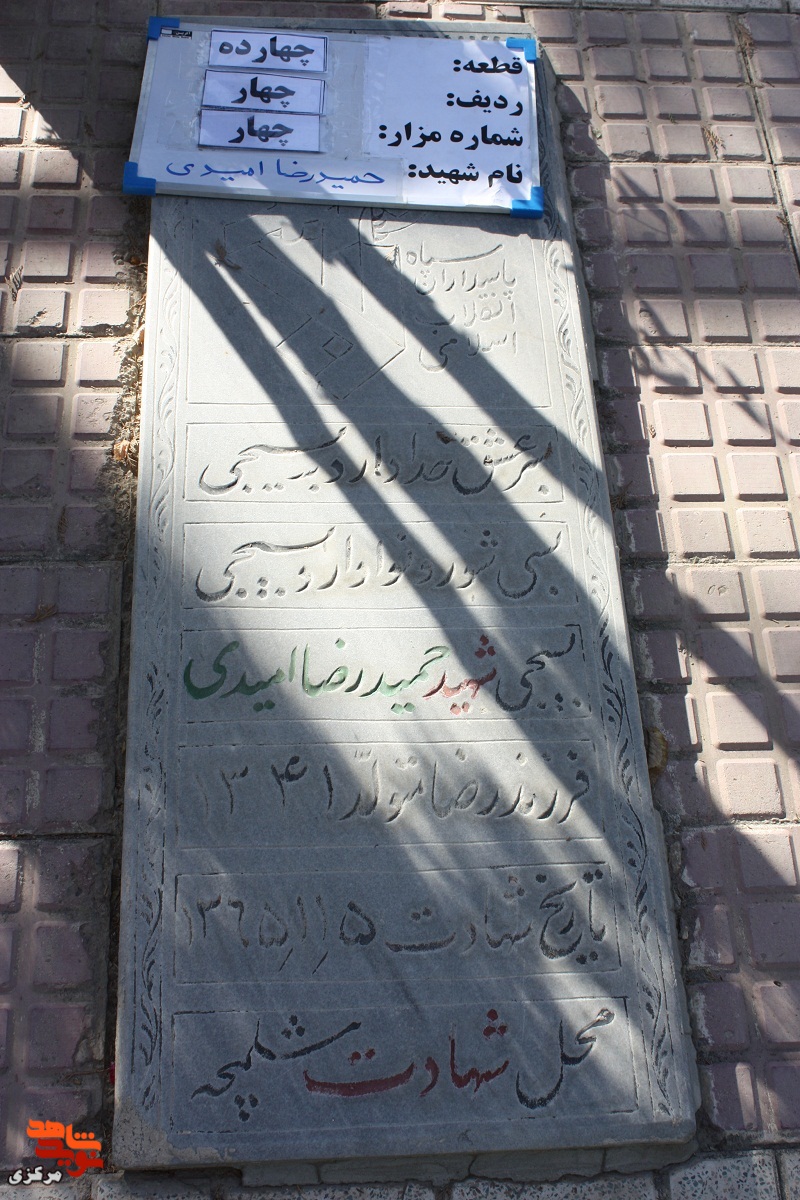 قطعه: چهارده
ردیف: چهار
شماره مزار: چهار
نام شهید: حمیدرضا امیدی
سپاه
پاسداران
انقلاب
اسلامی
بسر عشق خدا دارد بسیجی
بسی شور و نوا دارد بسیجی
بسیجی شهید حمیدرضا امیدی
فرزند رضا متولّد ۱۳۴۱
تاریخ شهادت ۱۳۶۵/۱۱/۵
محل شهادت شلمچه
نوید شاهد
مرکزی